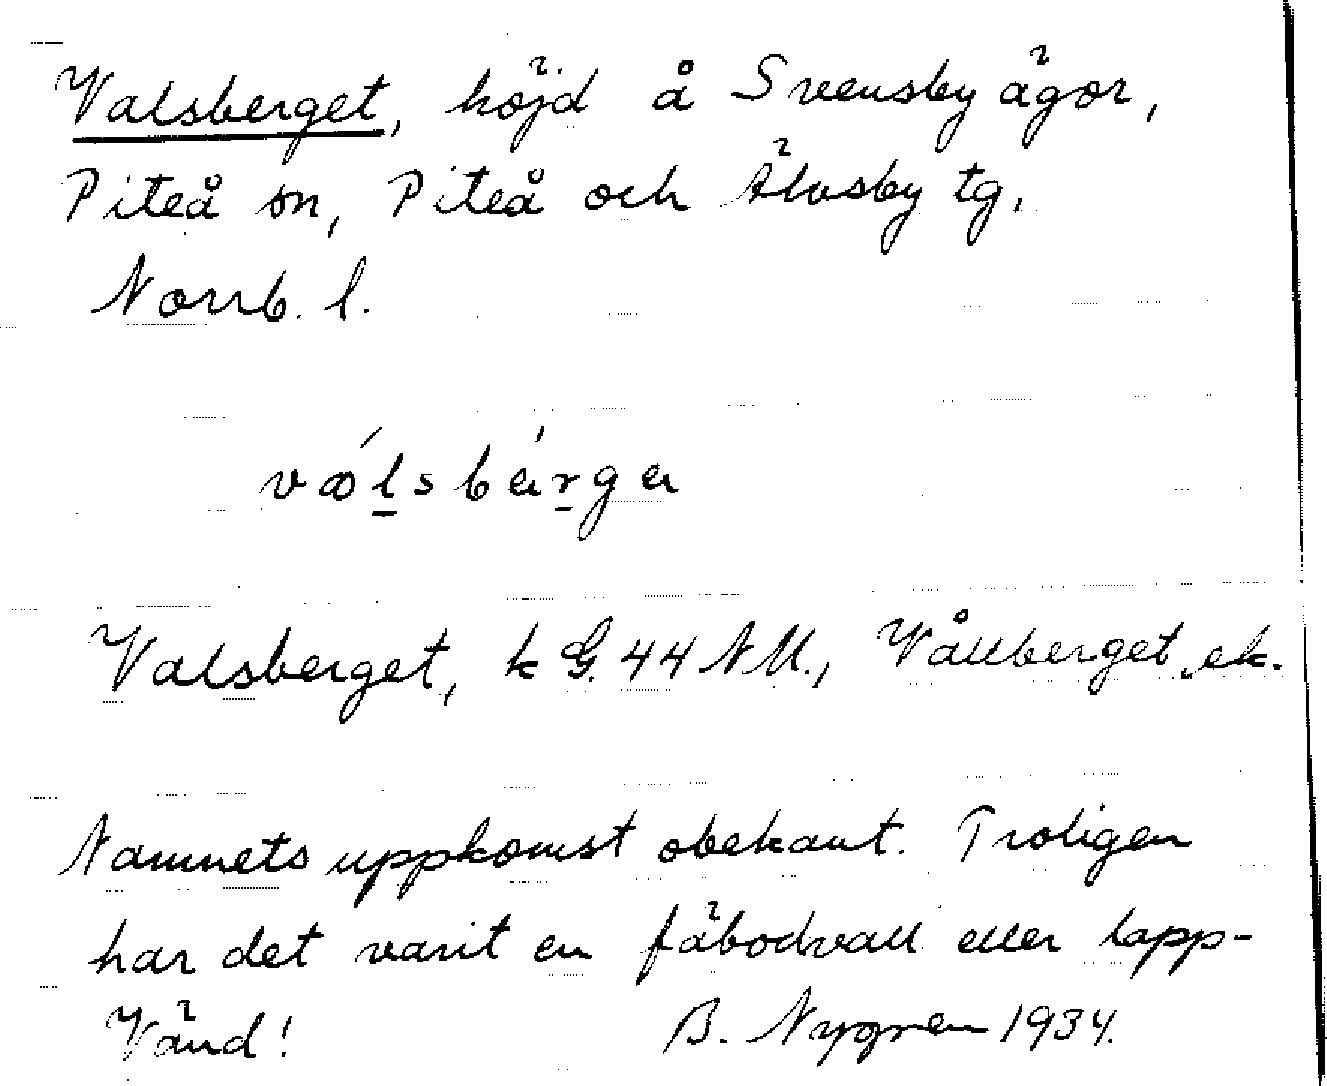 Valsberget, höjd å Svensby ägor,
Piteå sn, Piteå och Älvsby tg,
Norrb. l.
Valsberget, k G. 44 NM., Vållberget, ek.
Namnets uppkomst obekant. Troligen
har det varit en fäbodvall eller lapp-
Vänd! B. Nygren 1934.